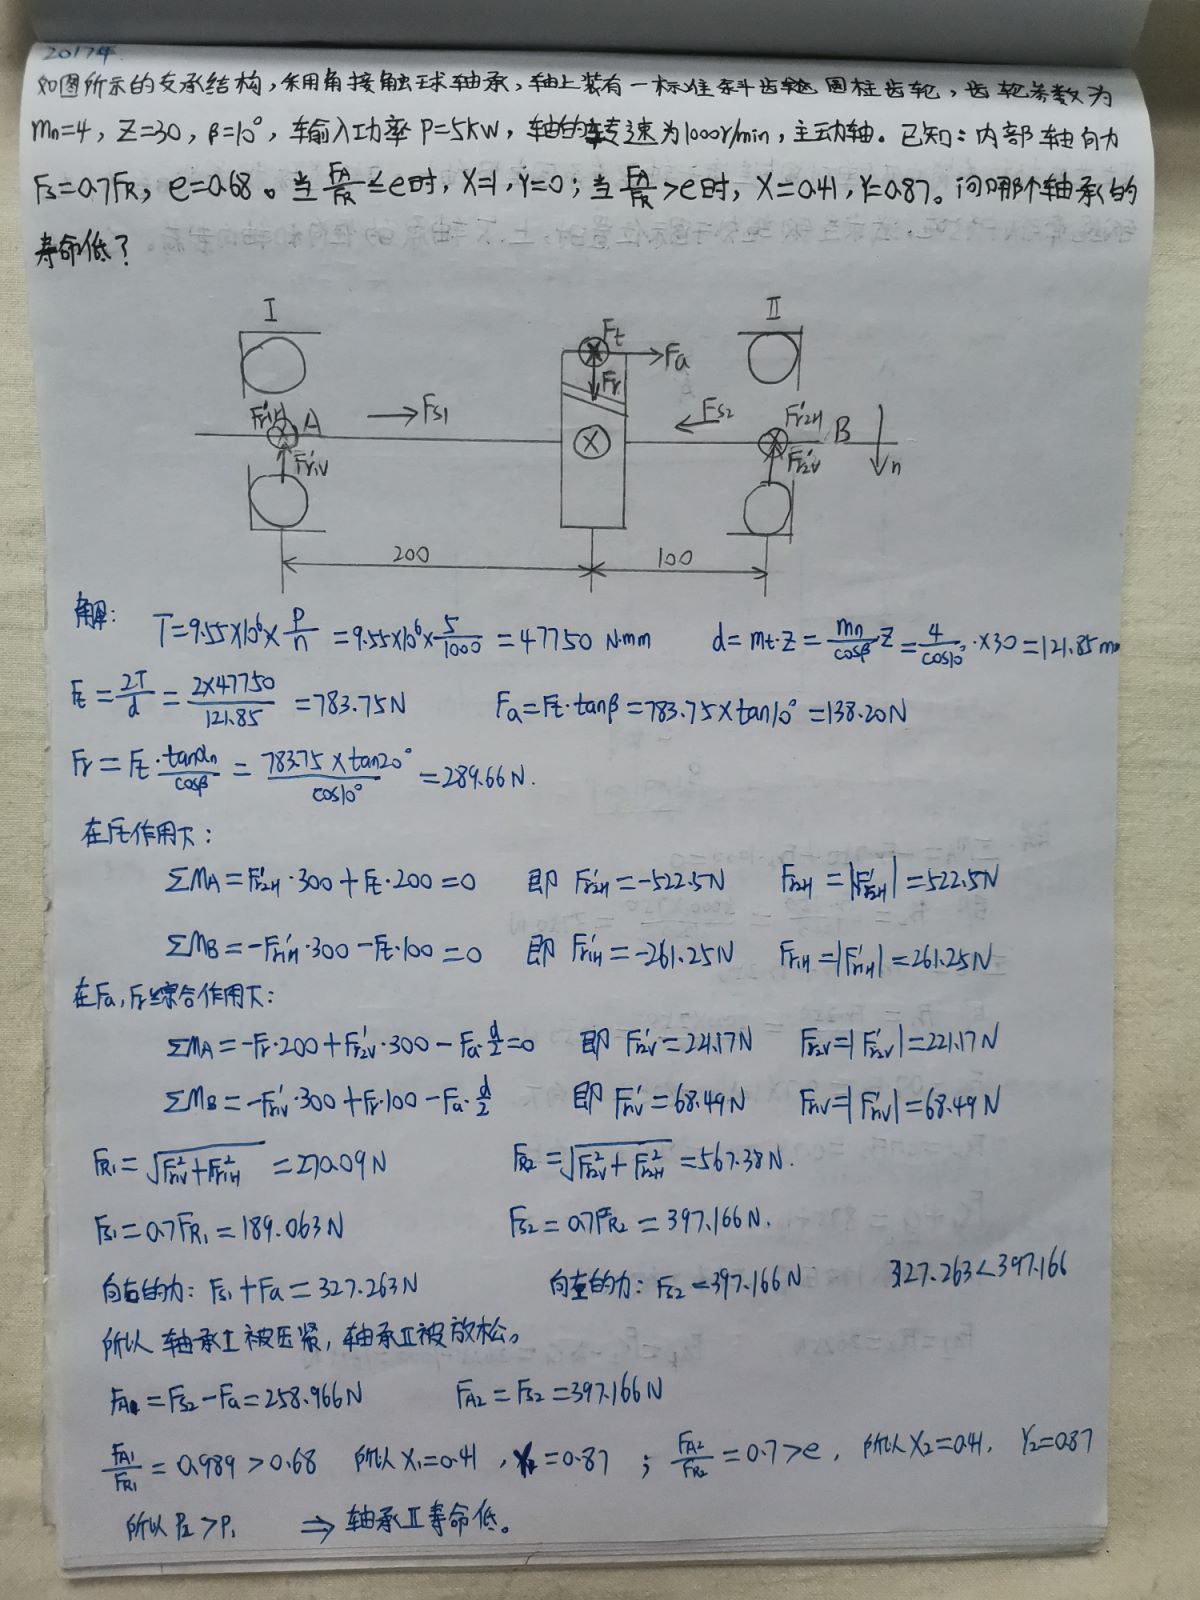 2017年.
如图所示的支承结构,采用角接触球轴承,轴上装有一标准斜齿轮圆柱齿轮,齿轮参数为
mn=4, Z=30, β=10°, 轴输入功率 P=5kW, 轴的转速为1000r/min, 主动轴。已知:内部轴向力
Fs=0.7FR, e=0.68。当 FA/FR ≤e时, X=1, Y=0; 当 FA/FR >e时, X=0.41, Y=0.87。问哪个轴承的
寿命低?
I II
Ft Fa
Fr
Fr1H' A Fs1 Fs2 Fr2H' B
Fr1V' Fr2V' n
200 100
解: T=9.55×10⁶×P/n =9.55×10⁶×5/1000 =47750 N·mm d=mt·Z=mn/cosβ Z=4/cos10° ×30=121.85mm
Ft=2T/d=2×47750/121.85 =783.75N Fa=Ft·tanβ=783.75×tan10°=138.20N
Fr=Ft·tanαn/cosβ=783.75×tan20°/cos10° =289.66N.
在Ft作用下:
ΣMA=Fr2H'·300+Ft·200=0 即 Fr2H'=-522.5N Fr2H=|Fr2H'|=522.5N
ΣMB=-Fr1H'·300-Ft·100=0 即 Fr1H'=-261.25N Fr1H=|Fr1H'|=261.25N
在Fa,Fr综合作用下:
ΣMA=-Fr·200+Fr2V'·300-Fa·d/2=0 即 Fr2V'=221.17N Fr2V=|Fr2V'|=221.17N
ΣMB=-Fr1V'·300+Fr·100-Fa·d/2 即 Fr1V'=68.49N Fr1V=|Fr1V'|=68.49N
FR1=√(Fr1V²+Fr1H²)=270.09N FR2=√(Fr2V²+Fr2H²)=567.38N.
Fs1=0.7FR1=189.063N Fs2=0.7FR2=397.166N.
向右的力: Fs1+Fa=327.263N 向左的力: Fs2=397.166N 327.263<397.166
所以 轴承I被压紧, 轴承II被放松。
FA1=Fs2-Fa=258.966N FA2=Fs2=397.166N
FA1/FR1=0.989>0.68 所以X1=0.41, Y1=0.87; FA2/FR2=0.7>e, 所以X2=0.41, Y2=0.87
所以 P2>P1 ⇒ 轴承II寿命低。